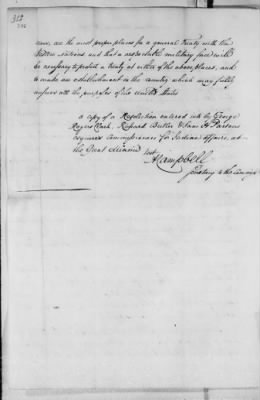 now, are the most proper places for a general Treaty with the
Western nations and that a respectable military force will
be necessary to protect a Treaty at either of the above places, and
to make an establishment in the country which may fully
answer all the purposes of the United States
a copy of a Resolution entered into by George
Rogers Clark, Richard Butler & Sam H Parsons
Esquires Commissioners for Indian affairs, at
the Great Miami
A Campbell
Secretary to the Commission